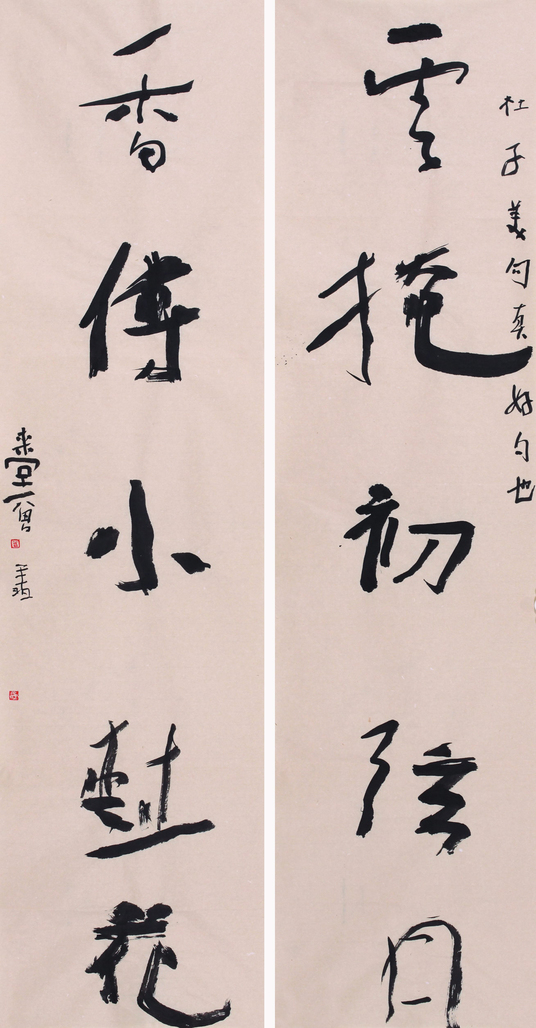 杜子美句真好句也
雲掩初弦月
香傳小樹花